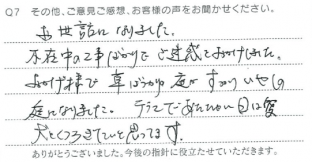 Q7 その他、ご意見ご感想、お客様の声をお聞かせください。
お世話になりました。
不在中の工事ばかりでご迷惑をおかけしました。
おかげ様で草ばかりの庭がすっかりいやしの
庭になりました。テラスであたたかい日は愛
犬とくつろぎたいと思ってます。
ありがとうございました。今後の指針に役立たせていただきます。